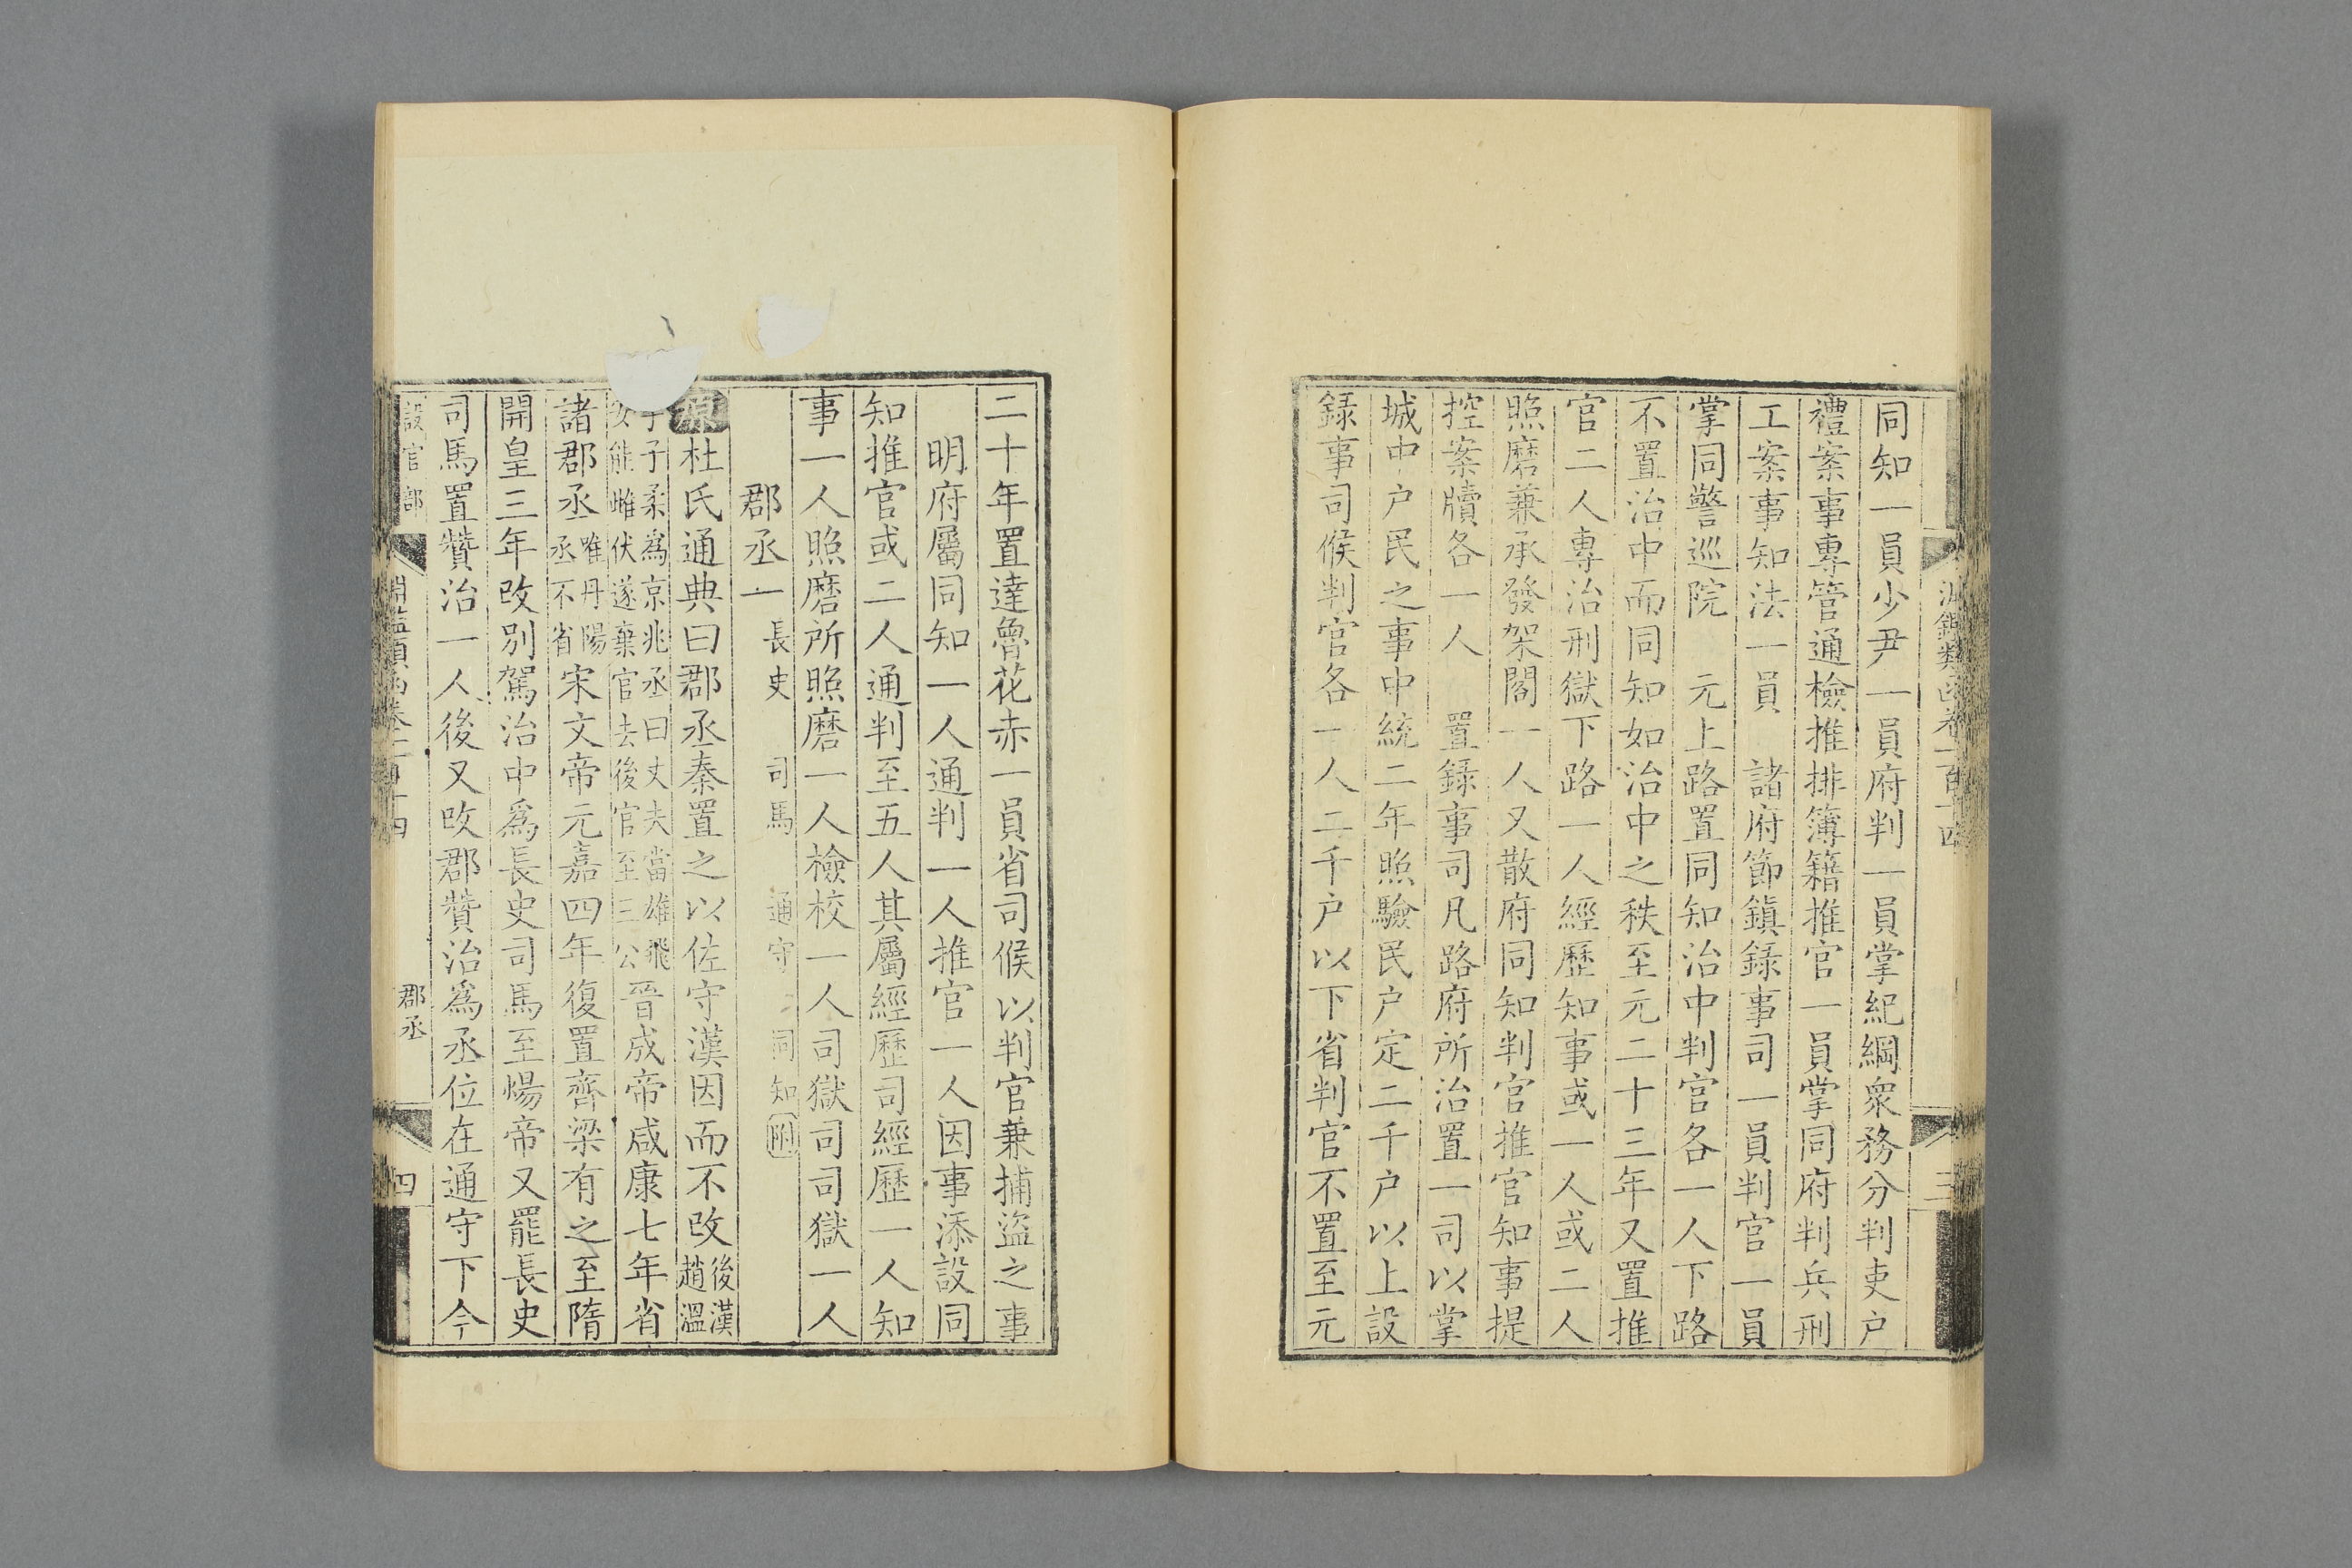 同知一員少尹一員府判一員掌紀綱衆務分判吏户
禮案事專管通檢推排簿籍推官一員掌同府判兵刑
工案事知法一員　諸府節鎮錄事司一員判官一員
掌同警巡院　元上路置同知治中判官各一人下路
不置治中而同知如治中之秩至元二十三年又置推
官二人專治刑獄下路一人經歷知事或一人或二人
照磨兼承發架閣一人又散府同知判官推官知事提
控案牘各一人　置錄事司凡路府所治置一司以掌
城中户民之事中統二年照驗民户定二千户以上設
錄事司候判官各一人二千户以下省判官不置至元
二十年置達魯花赤一員省司候以判官兼捕盜之事
明府屬同知一人通判一人推官一人因事添設同
知推官或二人通判至五人其屬經歷司經歷一人知
事一人照磨所照磨一人檢校一人司獄司司獄一人
郡丞一　長史　司馬　通守　同知附
原杜氏通典曰郡丞秦置之以佐守漢因而不改後漢趙溫
字子柔為京兆丞曰丈夫當雄飛安能雌伏遂棄官去後官至三公晉成帝咸康七年省
諸郡丞唯丹陽丞不省宋文帝元嘉四年復置齊梁有之至隋
開皇三年改別駕治中爲長史司馬至煬帝又罷長史
司馬置贊治一人後又改郡贊治爲丞位在通守下今
設官部　淵鑑類函卷一百十四　郡丞　四